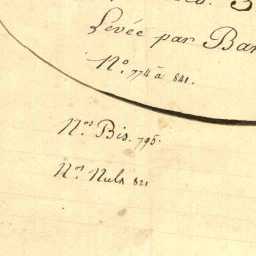 Levée par Bar
N.º 774 à 841.
N.ºˢ Bis. 795.
N.ºˢ Nuls 821